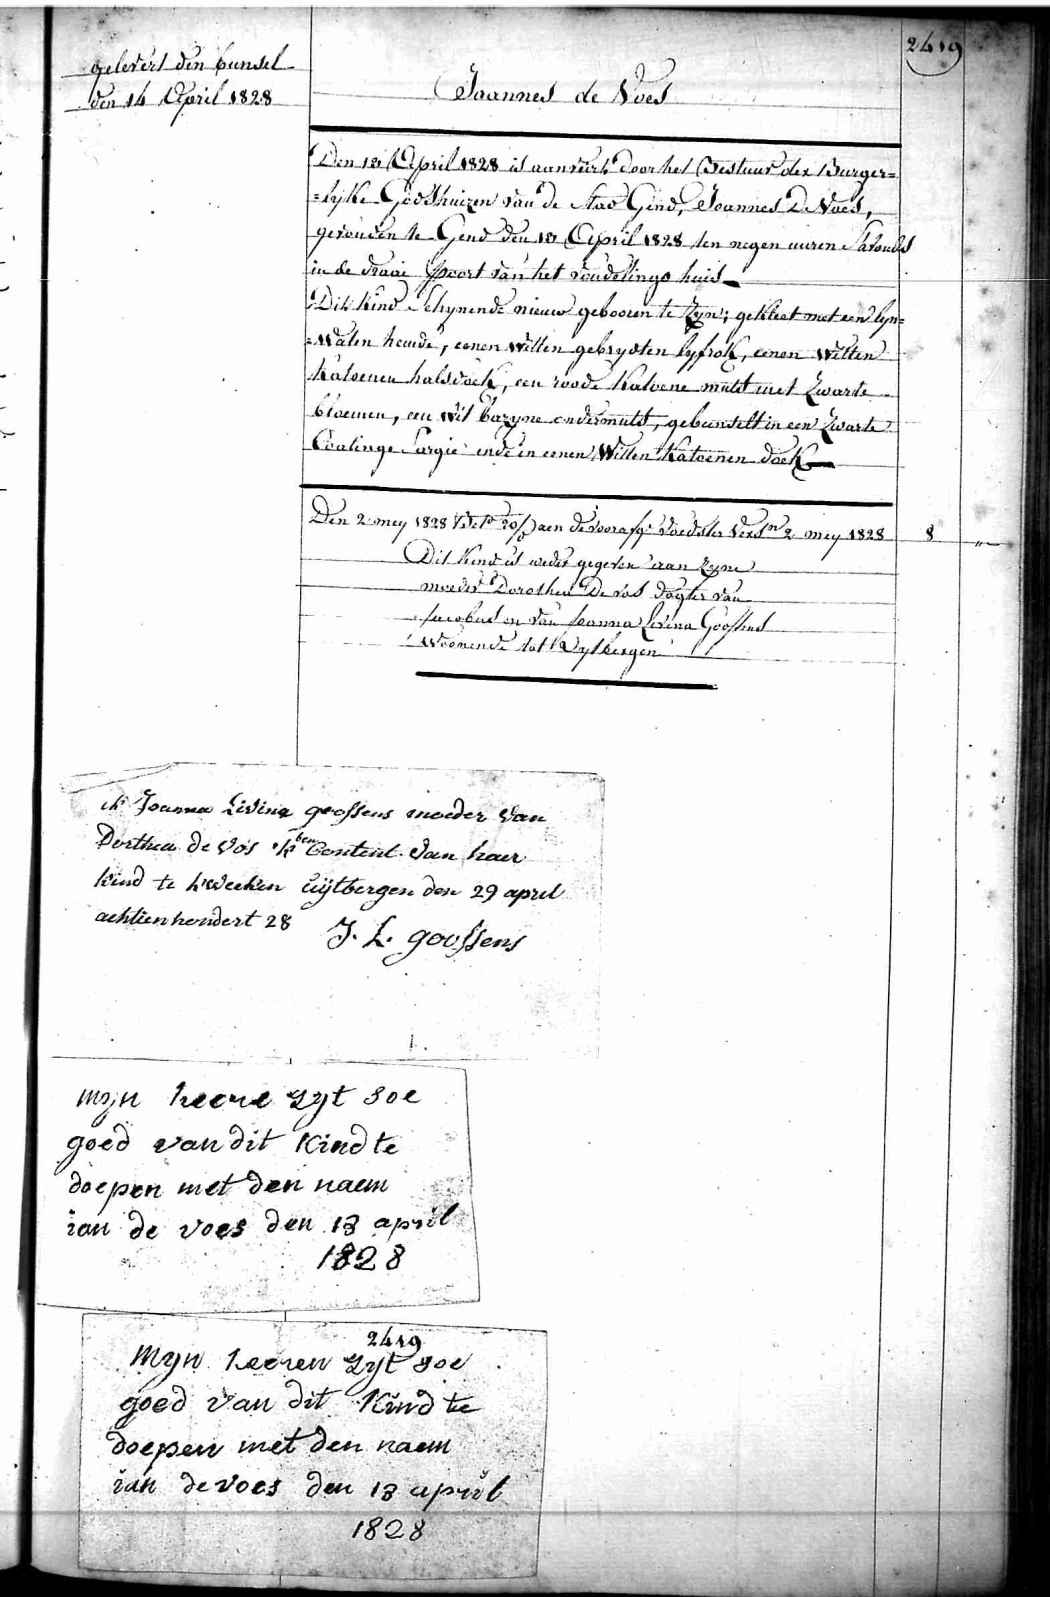 2419
gelevert den bunsel
den 14 April 1828
Joannes de Voes
Den 13 April 1828 is aanveert door het Bestuur der Burger=
=lyke Godshuizen van de Stad Gend, Joannes De Voes,
gevonden te Gend den 13 April 1828 ten negen uuren S'avonds
in de draai Poort van het vondelings huis
Dit Kind Schynende nieuw gebooren te Zyn; gekleet met een lyn=
=waten hemde, eenen witten gebryden lyfrok, eenen witten
Katoenen halsdoek, een roode Katoene muts met Zwarte
bloemen, een wit bazyne ondermuts, gebunselt in een Zwarte
Sargie ende in eenen Witten Katoenen doek
Den 2 mey 1828 aen de voorafg. voedster 2 mey 1828 8 "
Dit Kind is weder gegeven aan Zyne
moeder Dorothea De vos dogter van
Jacobus en van Joanna Livina Goossens
Woonende tot Uytbergen
ik Joanna Livina goossens moeder van
Dorthea de Vos ik ben Content van haer
kind te kweeken uijtbergen den 29 april
achtienhondert 28
J. L. goossens
mijn heere zyt soe
goed van dit Kind te
doepen met den naem
ian de voes den 13 april
1828
2419
Myn heeren zyt soe
goed van dit Kind te
doepen met den naem
ian de voes den 13 april
1828